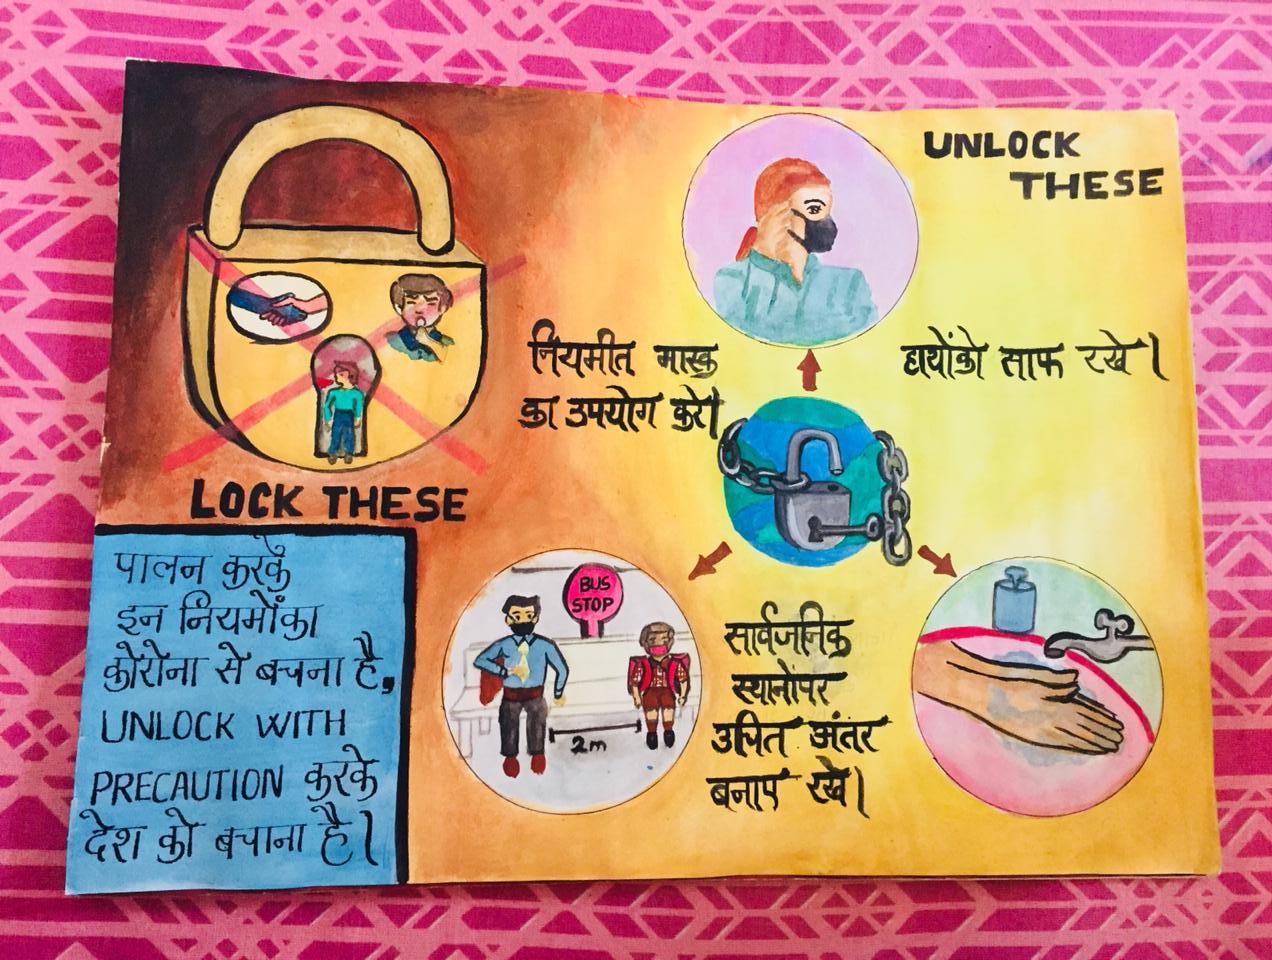 UNLOCK
THESE
नियमीत मास्क
का उपयोग करे।
हाथोंको साफ रखे।
LOCK THESE
BUS
STOP
2m
सार्वजनिक
स्थानोंपर
उचित अंतर
बनाए रखे।
पालन करके
इन नियमोंका
कोरोना से बचना है,
UNLOCK WITH
PRECAUTION करके
देश को बचाना है।